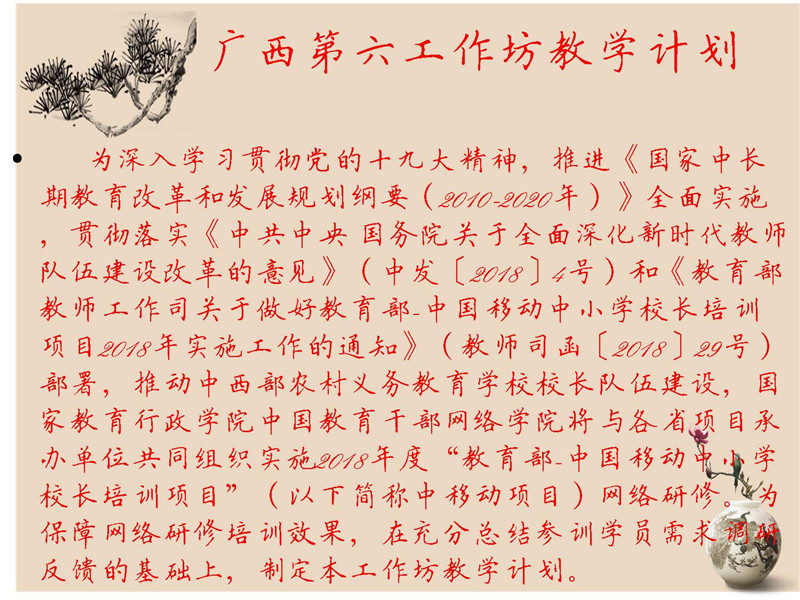 广西第六工作坊教学计划
• 为深入学习贯彻党的十九大精神，推进《国家中长
期教育改革和发展规划纲要（2010-2020年）》全面实施
，贯彻落实《中共中央 国务院关于全面深化新时代教师
队伍建设改革的意见》（中发〔2018〕4号）和《教育部
教师工作司关于做好教育部-中国移动中小学校长培训
项目2018年实施工作的通知》（教师司函〔2018〕29号）
部署，推动中西部农村义务教育学校校长队伍建设，国
家教育行政学院中国教育干部网络学院将与各省项目承
办单位共同组织实施2018年度“教育部-中国移动中小学
校长培训项目”（以下简称中移动项目）网络研修。为
保障网络研修培训效果，在充分总结参训学员需求调研
反馈的基础上，制定本工作坊教学计划。